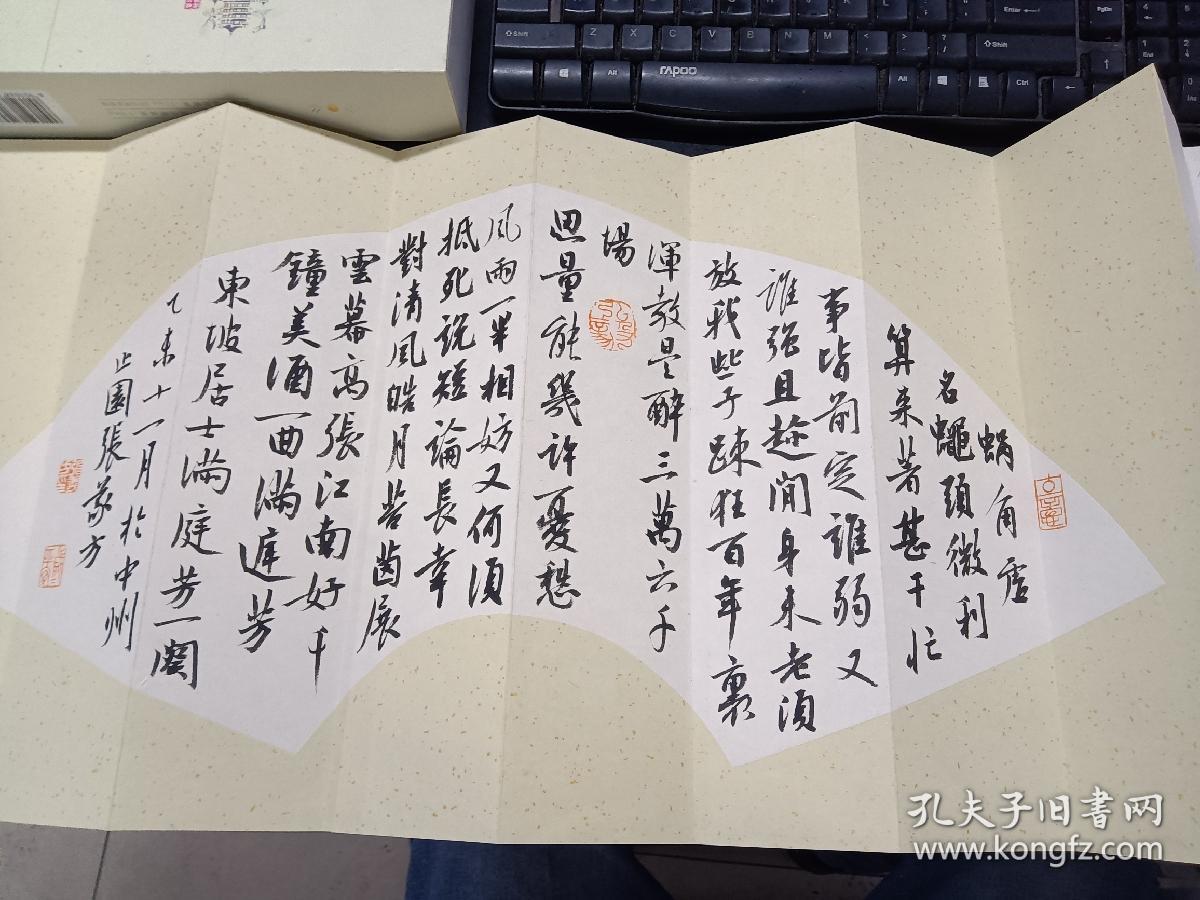 蝸角虛
名蠅頭微利
算来著甚干忙
事皆前定誰弱又
誰强且趂閒身未老須
放我些子踈狂百年裏
渾教是醉三萬六千
場
思量能幾許憂愁
風雨一半相妨又何須
抵死说短論長幸
對清風皓月苔茵展
雲幕高張江南好千
鐘美酒一曲滿庭芳
東坡居士滿庭芳一闋
乙未十一月於中州
止園張方
rapoo
Shift
Z X C V B N M
Alt
Alt
Ctrl
Enter
Shift
孔夫子旧书网
www.kongfz.com